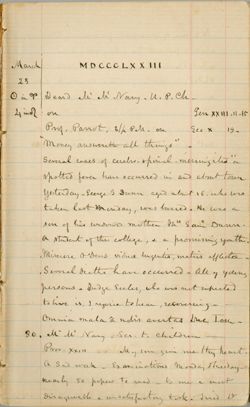 MDCCCLXXIII
March
23
Heard Mr McNary. U. P. Ch.
on Gen XXIII. 11-15
Prof. Parrot, 3½ P.M. on Ecc X. 19-
"Money answereth all things"-
Several cases of cerebro-spinal meningitis or
spotted fever have occurred in and about town
Yesterday George S. Dunn aged abt 18. who was
taken last Monday, was buried. He was a
son of his widowed mother Mrs Dunn.
A student of the college, & a promising youth.
Several deaths have occurred - All of young
persons - Judge Eccles, who was not expected
to live is, I rejoice to hear, recovering -
Omnia mala
30. Mr McNary - Ser. to Children -
Prov. XXIII - My son give me thy heart.
A sad week - Examinations Monday & Tuesday -
nearly 50 papers to read - to me a most
disagreeable & unsatisfactory task.